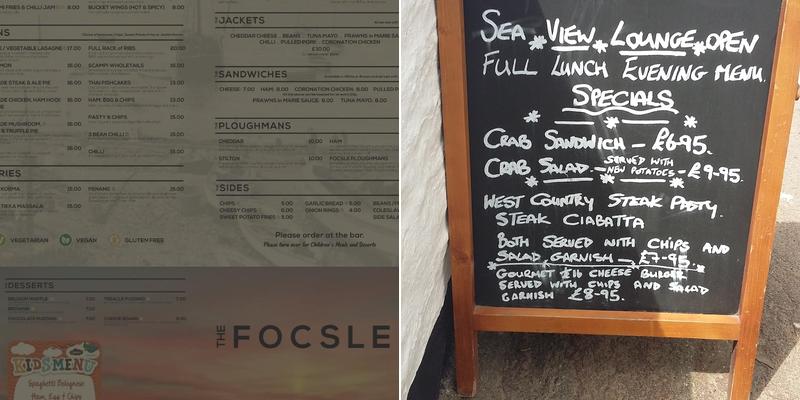 MI FRIES & CHILLI JAM 8.00
BUCKET WINGS (HOT & SPICY) 8.00
VEGETABLE LASAGNE 17.00
FULL RACK of RIBS 20.00
SCAMPI WHOLETAILS 15.00
THAI FISHCAKES 15.00
HAM, EGG & CHIPS 15.00
PASTY & CHIPS 15.00
3 BEAN CHILLI 15.00
CHILLI 15.00
KORMA 15.00
PENANG 15.00
TIKKA MASSALA 15.00
VEGETARIAN
VEGAN
GLUTEN FREE
JACKETS
CHEDDAR CHEESE . BEANS . TUNA MAYO . PRAWNS in MARIE SA
CHILLI . PULLED PORK . CORONATION CHICKEN
£10.00
SANDWICHES
CHEESE 7.00 HAM 8.00 CORONATION CHICKEN 8.00 PULLED P
PRAWNS in MARIE SAUCE 8.00 TUNA MAYO 8.00
PLOUGHMANS
CHEDDAR 10.00 HAM
STILTON 10.00 FOCSLE PLOUGHMANS
SIDES
CHIPS 5.00 GARLIC BREAD 5.00 BEANS/
CHEESY CHIPS 6.00 ONION RINGS 4.00 COLESLA
SWEET POTATO FRIES 5.00 SIDE SAL
Please order at the bar.
Please turn over for Children's Meals and Desserts
DESSERTS
BELGIUM WAFFLE 7.00 TREACLE PUDDING 7.00
BROWNIE 7.00
CHOCOLATE PUDDING CHEESE BOARD
THE FOCSLE
KIDS MENU
Spaghetti Bolognese
Ham, Egg & Chips
SEA VIEW LOUNGE OPEN
FULL LUNCH EVENING MENU.
SPECIALS
CRAB SANDWICH - £6-95.
CRAB SALAD - SERVED WITH NEW POTATOES - £9-95.
WEST COUNTRY STEAK PASTY.
STEAK CIABATTA
BOTH SERVED WITH CHIPS AND
SALAD GARNISH - £7-95.
GOURMET £1b CHEESE BURGER
SERVED WITH CHIPS AND SALAD
GARNISH £8-95.